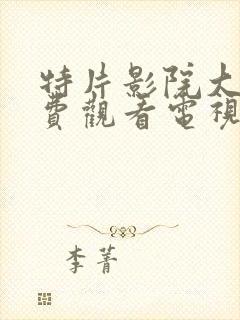 特片影院大
費觀看電視
李菁